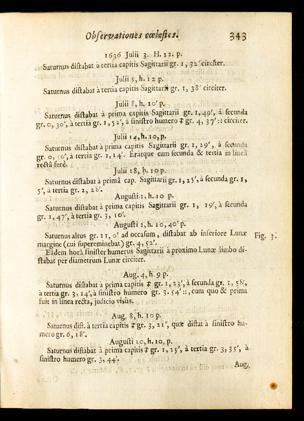 Observationes cœlestes. 343
1636 Julii 3. H. 12. p.
Saturnus distabat à tertia capitis Sagittarii gr. 1, 32′ circiter.
Julii 5, h. 12 p.
Saturnus distabat à tertia capitis Sagittarii gr. 1, 38′ circiter.
Julii 8, h. 10′ p.
Saturnus distabat à prima capitis Sagittarii gr. 1, 49′, à secunda
gr. 0, 30′, à tertia gr. 1, 52′, à sinistro humero gr. 4, 37′ :: circiter.
Julii 14, h. 10, p.
Saturnus distabat à prima capitis Sagittarii gr. 1, 29′, à secunda
gr. 0, 10′, à tertia gr. 1, 14′. Eratque cum secunda & tertia in linea
recta ferè.
Julii 18, h. 10 p.
Saturnus distabat à prima cap. Sagittarii gr. 1, 25′, à secunda gr. 1,
5′, à tertia gr. 2, 26′.
Augusti 1, h. 10 p.
Saturnus distabat à prima capitis Sagittarii gr. 1, 19′, à secunda
gr. 1, 47′, à tertia gr. 3, 10′.
Augusti 3, h. 10, 40′ p.
Saturnus altus gr. 11, 0′ ad occasum, distabat ab inferiore Lunæ Fig. 3.
margine (cui supereminebat) gr. 4, 52′.
Eadem horâ sinister humerus Sagittarii à proximo Lunæ limbo di-
stabat per diametrum Lunæ circiter.
Aug. 4, h. 9 p.
Saturnus distabat à prima capitis gr. 1, 23′, à secunda gr. 1, 58′,
à tertia gr. 3, 14′, à sinistro humero gr. 3. 54′ ::, cum quo & prima
fuit in linea recta, judicio visûs.
Aug. 8, h. 10 p.
Saturnus dist. à tertia capitis gr. 3, 21′, quæ distat à sinistro hu-
mero gr. 6, 18′.
Augusti 10, h. 10, p.
Saturnus distabat à prima capitis gr. 1, 25′, à tertia gr. 3, 35′, à
sinistro humero gr. 3, 44′.
Aug.